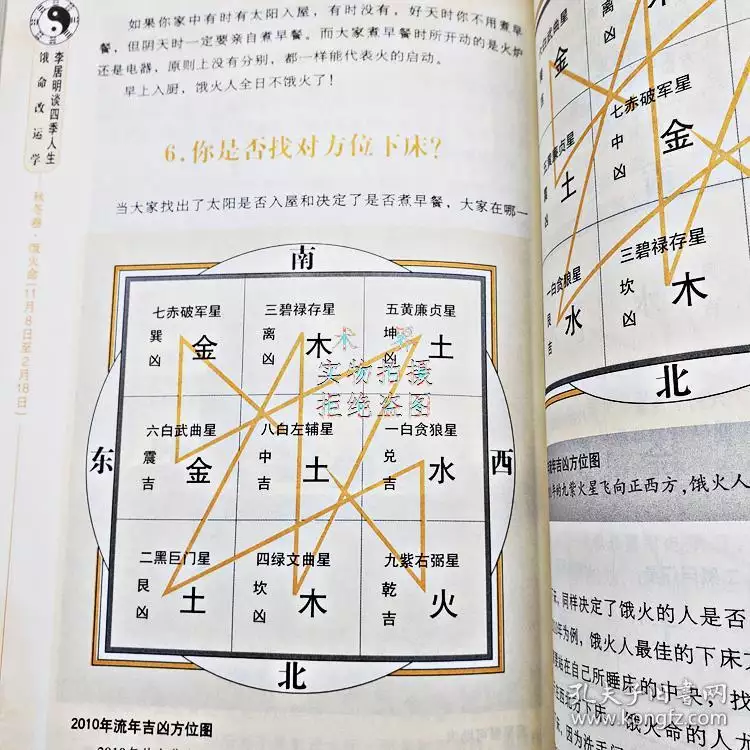 李居明谈四季人生
饿命改运学
秋冬卷·饿火命(11月8日至2月18日)
如果你家中有时有太阳入屋，有时没有，好天时你不用煮早
餐，但阴天时一定要亲自煮早餐。而大家煮早餐时所开动的是火炉
还是电器，原则上没有分别，都一样能代表火的启动。
早上入厨，饿火人全日不饿火了！
6.你是否找对方位下床？
当大家找出了太阳是否入屋和决定了是否煮早餐，大家在哪一
南
七赤破军星
巽凶
金
三碧禄存星
离凶
木
五黄廉贞星
坤凶
土
东
六白武曲星
震吉
金
八白左辅星
中吉
土
一白贪狼星
兑吉
水
西
二黑巨门星
艮凶
土
四绿文曲星
坎凶
木
九紫右弼星
乾吉
火
北
2010年流年吉凶方位图
实物拍摄
拒绝盗图
金
七赤破军星
中凶
金
五黄廉贞星
土
一白贪狼星
艮吉
水
三碧禄存星
坎凶
木
北
年吉凶方位图
年的九紫火星飞向正西方，饿火人
同样决定了饿火的人是否
年为例，饿火人最佳的下床方
站在自己所睡床的中央，找
西北方下床，饿火命的人
因为洗手间
孔夫子旧书网
www.kongfz.com